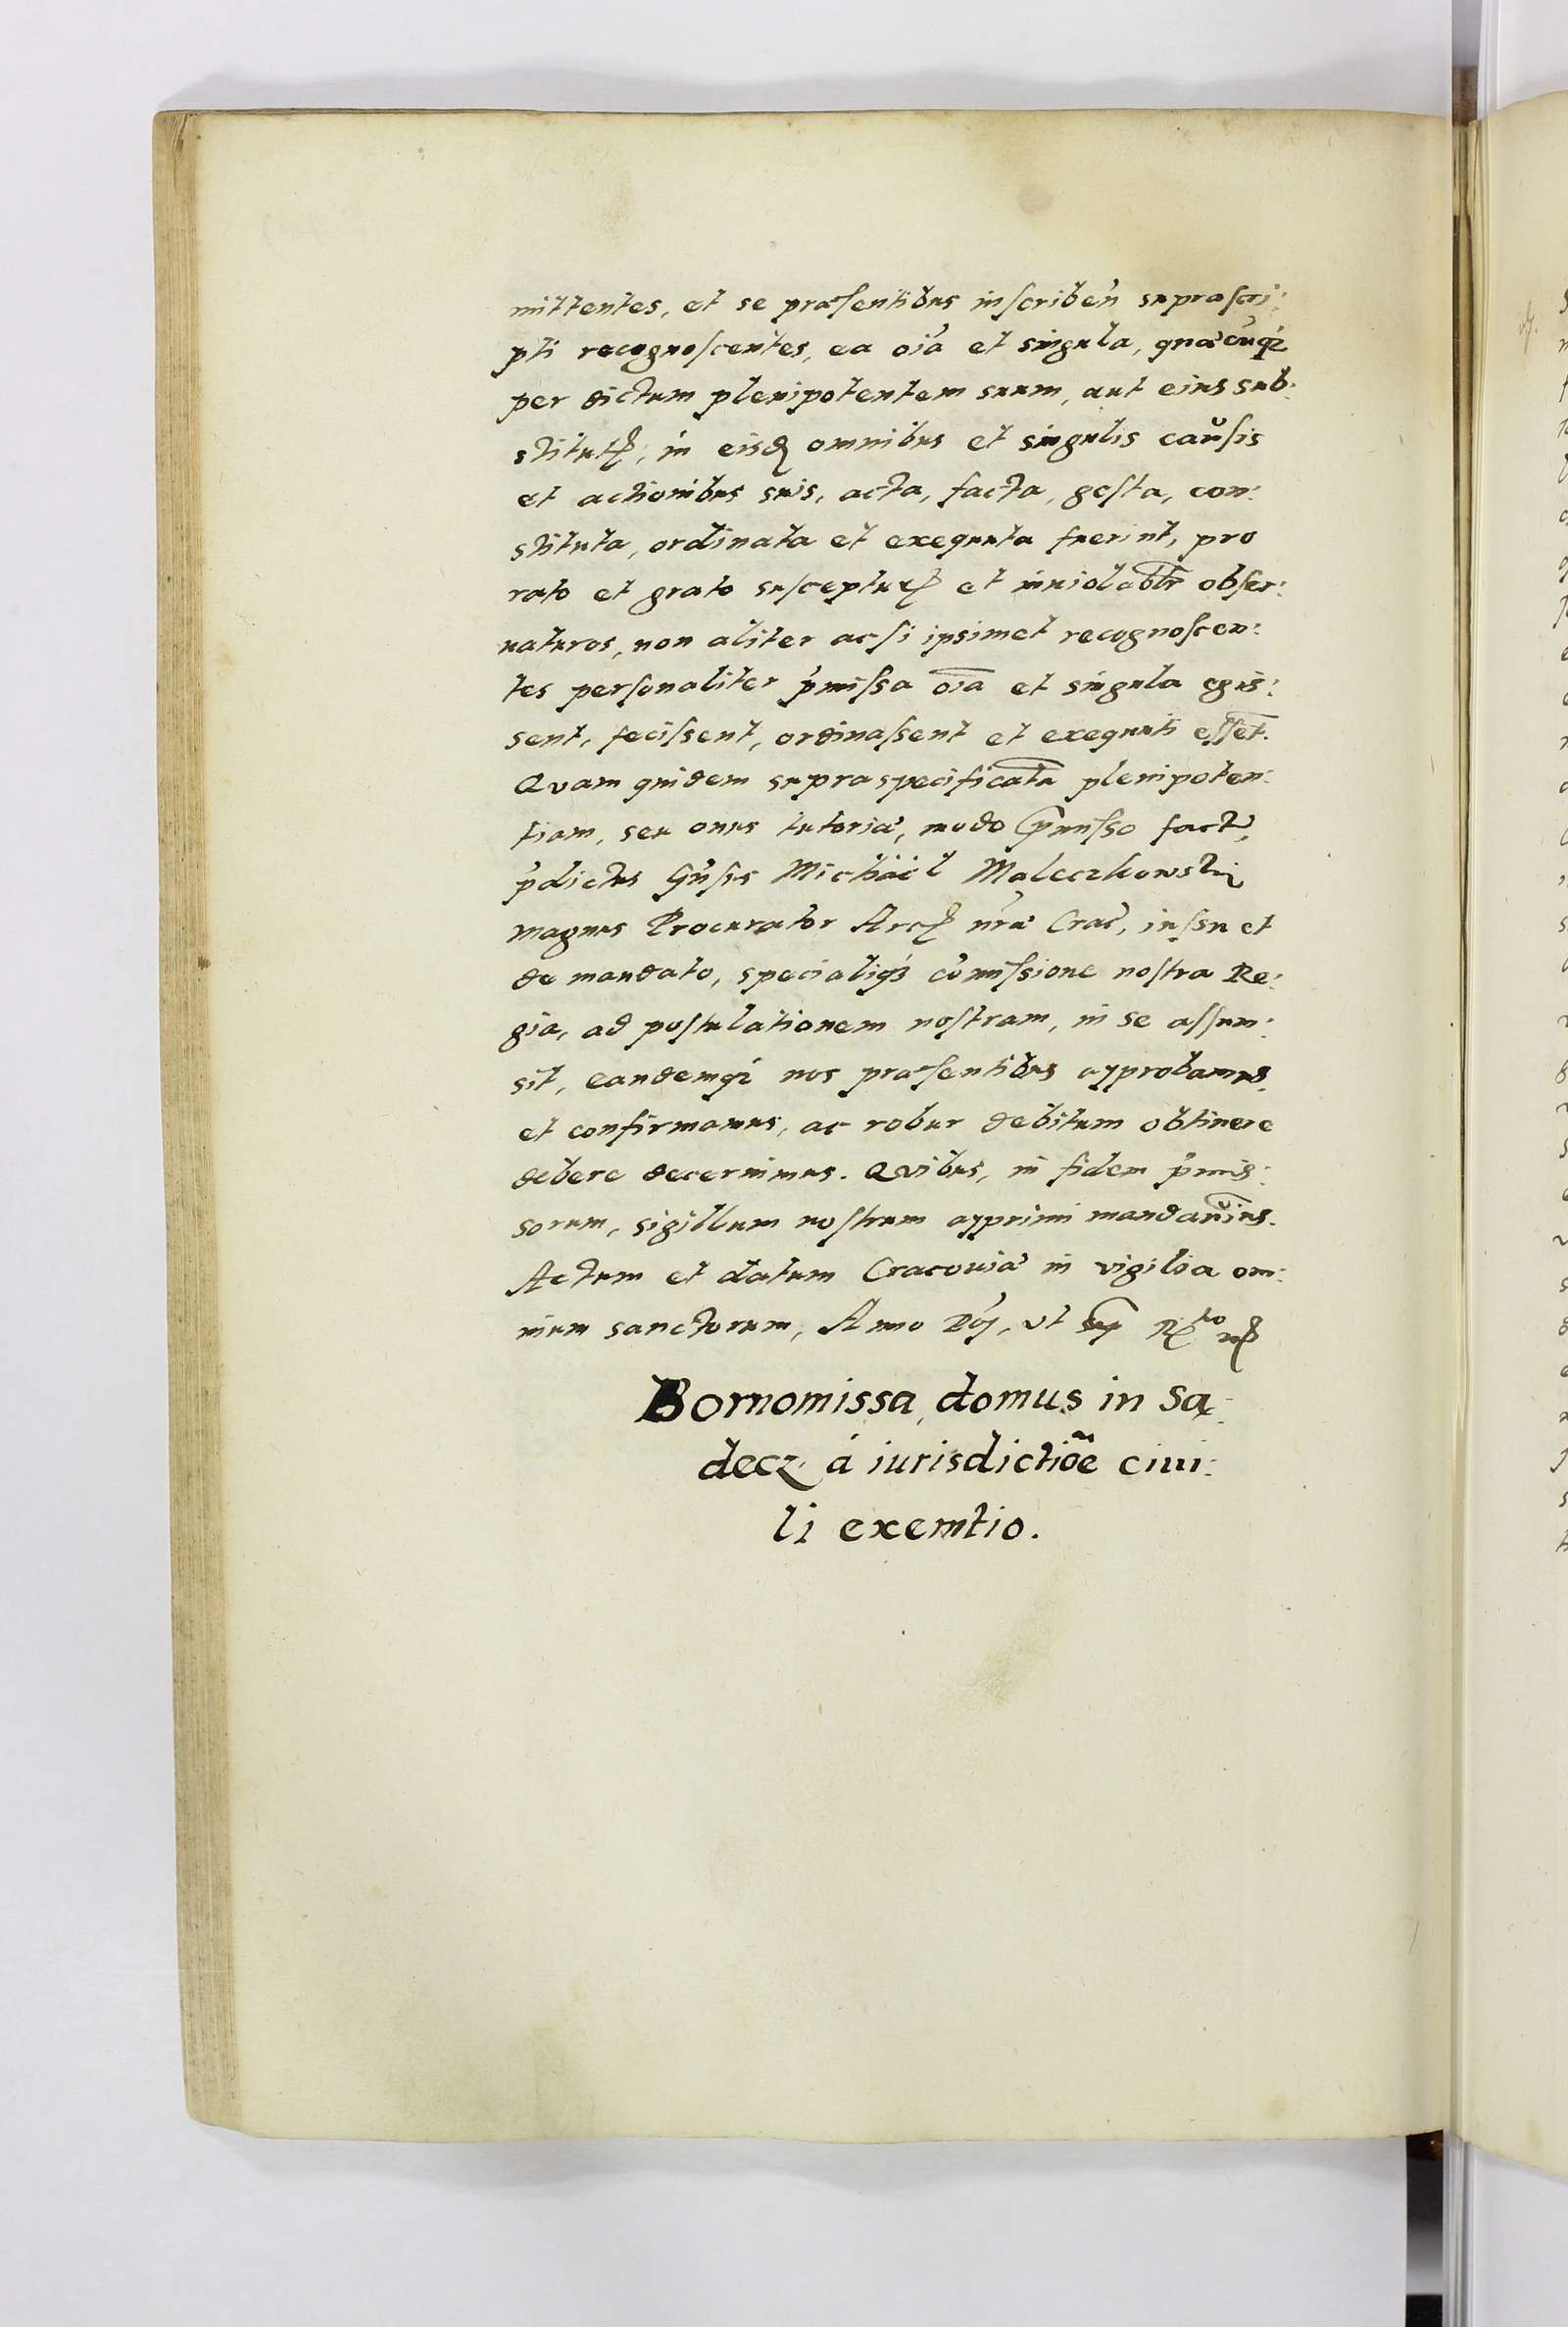 mittentes, et se præsentibus inscriben̄ suprascri:
pti recognoscentes, ea oīa et singula, quæcūqꝫ
per dictum plenipotentem suum, aut eius sub:
stitut, in eisd omnibus et singulis causis
et actionibus suis, acta, facta, gesta, con:
stituta, ordinata et exequuta fuerint, pro
rato et grato susceptur et inuiolabłr obser:
uaturos, non aliter ac si ipsimet recognoscen:
tes personaliter p̄missa oīa et singula egis:
sent, fecissent, ordinassent et exequuti esset.
Quam quidem supraspecificata plenipoten:
tiam, seu onus tutoriæ, modo p̄misso fact,
p̄dictus Gn̄sus Michäel Maleczkowski
magnus Procurator Arc nr̄æ Crac̄, iussu et
de mandato, specialiqꝫ cōmissione nostra Re:
gia, ad postulationem nostram, in se assum:
sit, eandemqꝫ nos præsentibus approbamus
et confirmamus, ac robur debitum obtinere
debere decernimus. Quibus, in fidem p̄mis:
sorum, sigillum nostrum apprimi mandauim̄us.
Actum et datum Cracouiæ in vigilia om:
nium sanctorum, Anno Dn̄j, vt
Bornomissa domus in Sa:
decz á iurisdictiōe ciui:
li exemtio.